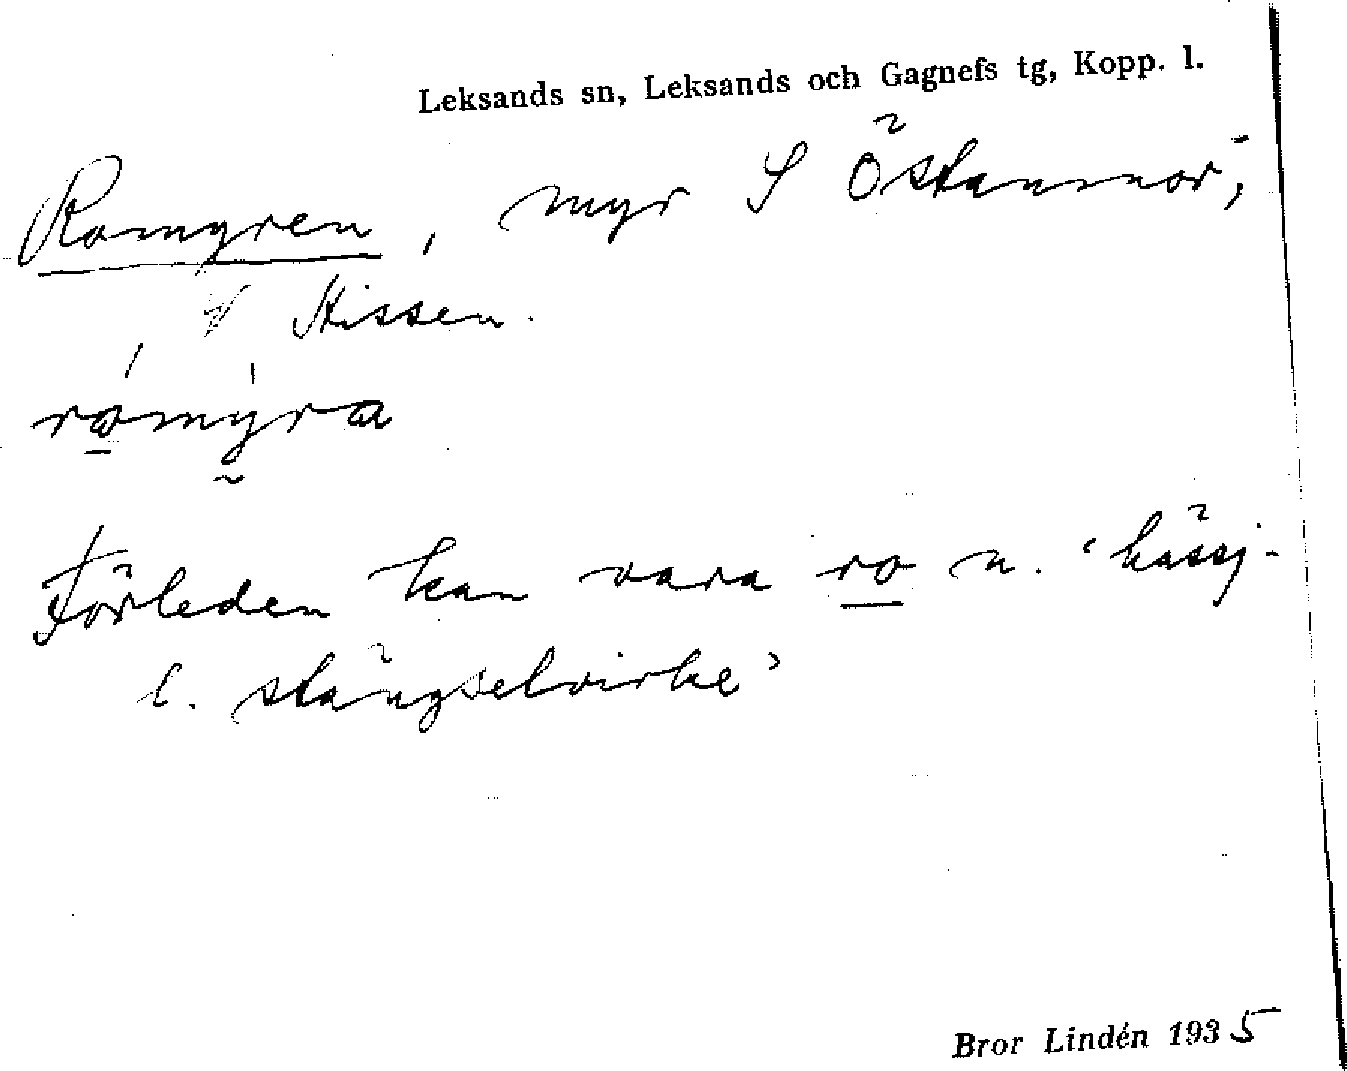 Leksands sn, Leksands och Gagnefs tg, Kopp. l.
Romyren, myr S Östanmor,
V Hissen.
ròmýra
Förleden kan vara ro n. 'hässj-
l. stängselvirke'
Bror Lindén 1935